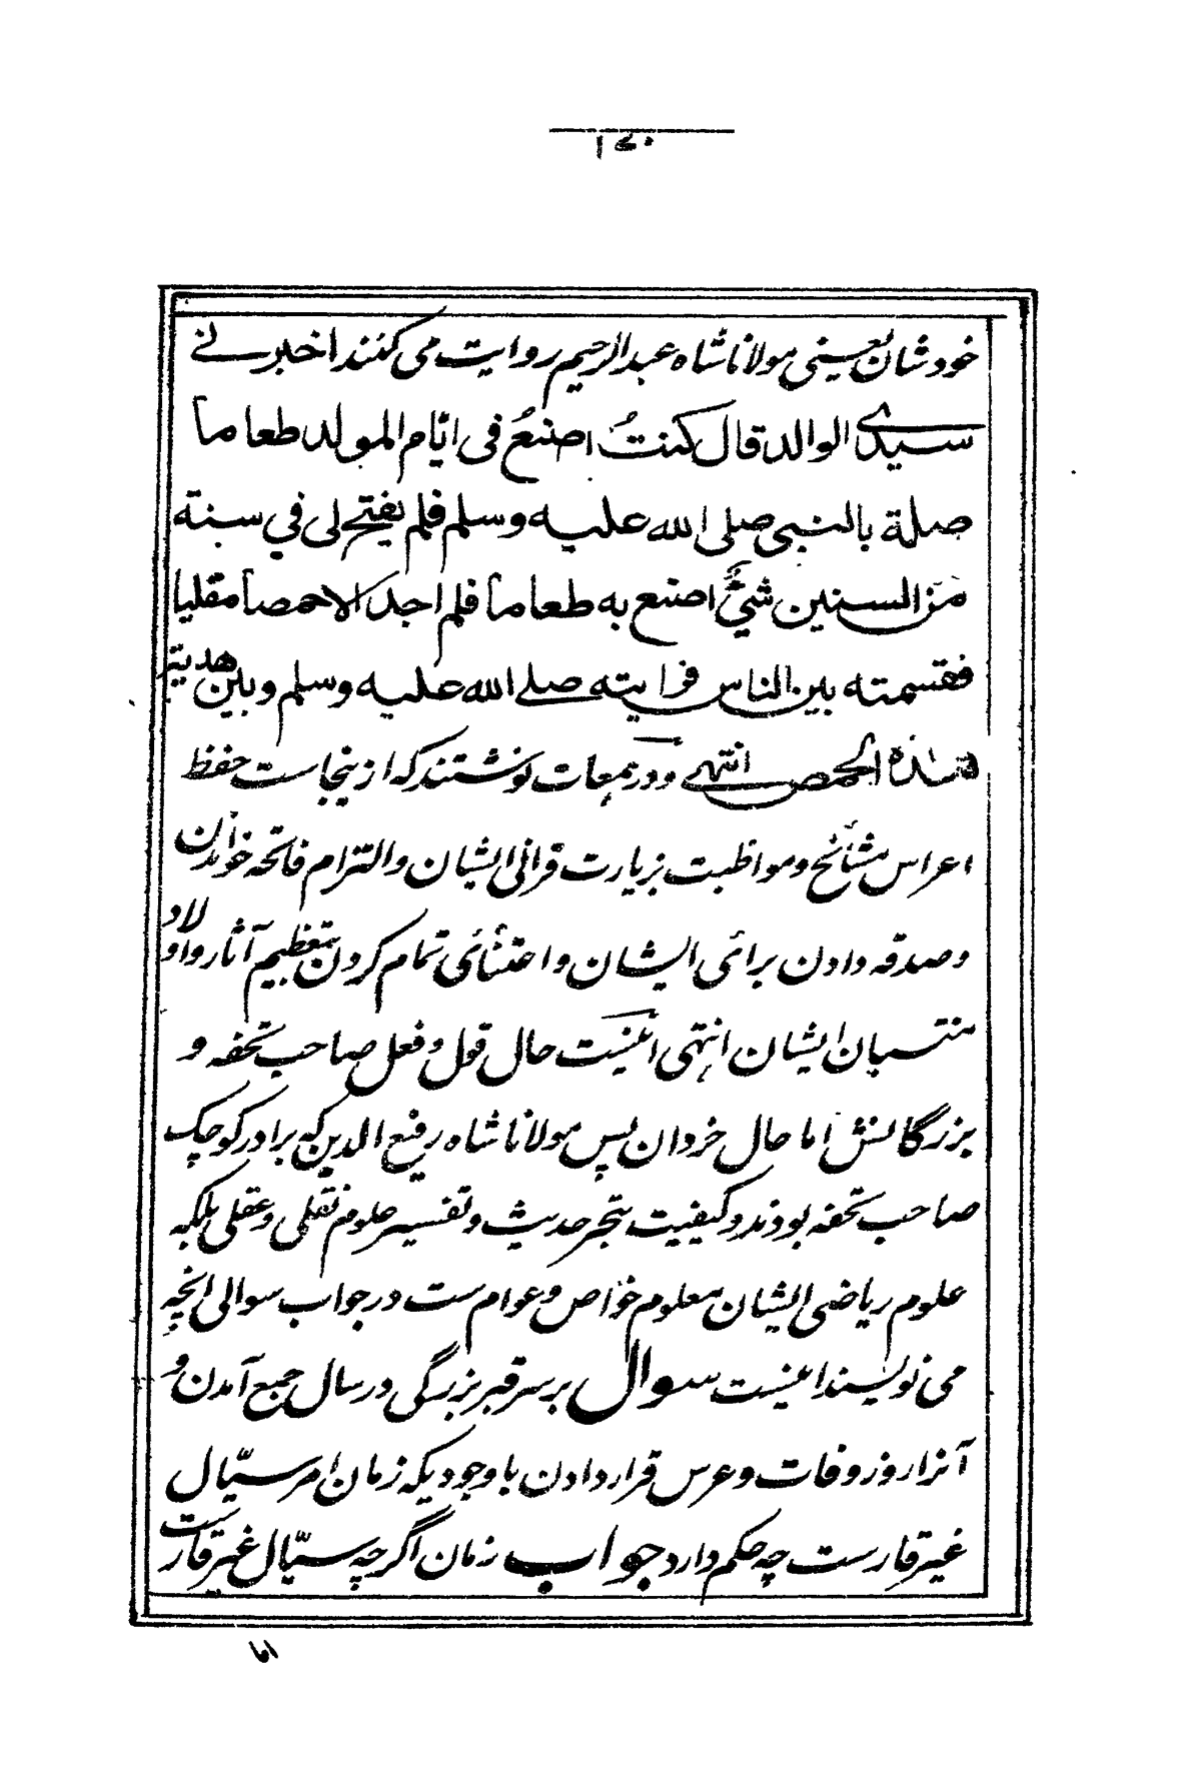 ۱۴۰
خودشان یعنی مولانا شاه عبدالرحیم روایت می کنند اخبرنے
سیدی الوالد قال کنتُ اصنعُ فی ایّام المولد طعاماً
صلة بالنبی صلی الله علیه وسلم فلم یفتح لی فی سنة
مّن السنین شیٌٔ اصنع به طعاماً فلم اجد الا حمصاً مقلیا
فقسمته بین الناس فرایته صلے الله علیه وسلم وبین هدیتر
هٰذه الحمص انتهے ودر همعات نوشتند که ازینجاست حفظ
اعراس مشائخ ومواظبت بزیارت قرانی ایشان والتزام فاتحه خواندن
وصدقه دادن برائی ایشان واعتنائی تمام کردن بتعظیم آثار و اولاد
منتسبان ایشان انتهی اینست حال قول وفعل صاحب تحفه و
بزرگانش اما حال خردان پس مولانا شاه رفیع الدین که برادر کوچک
صاحب تحفه بودند وکیفیت تبحر حدیث وتفسیر علوم نقلی وعقلی بلکه
علوم ریاضی ایشان معلوم خواص وعوام ست در جواب سوالی انچه
می نویسند اینست سوال بر سر قبر بزرگی در سال جمع آمدن و
آنرا روز وفات وعرس قرار دادن باوجودیکه زمان امر سیّال
غیر قارست چه حکم دارد جواب زمان اگرچه سیّال غیر قارست
اما